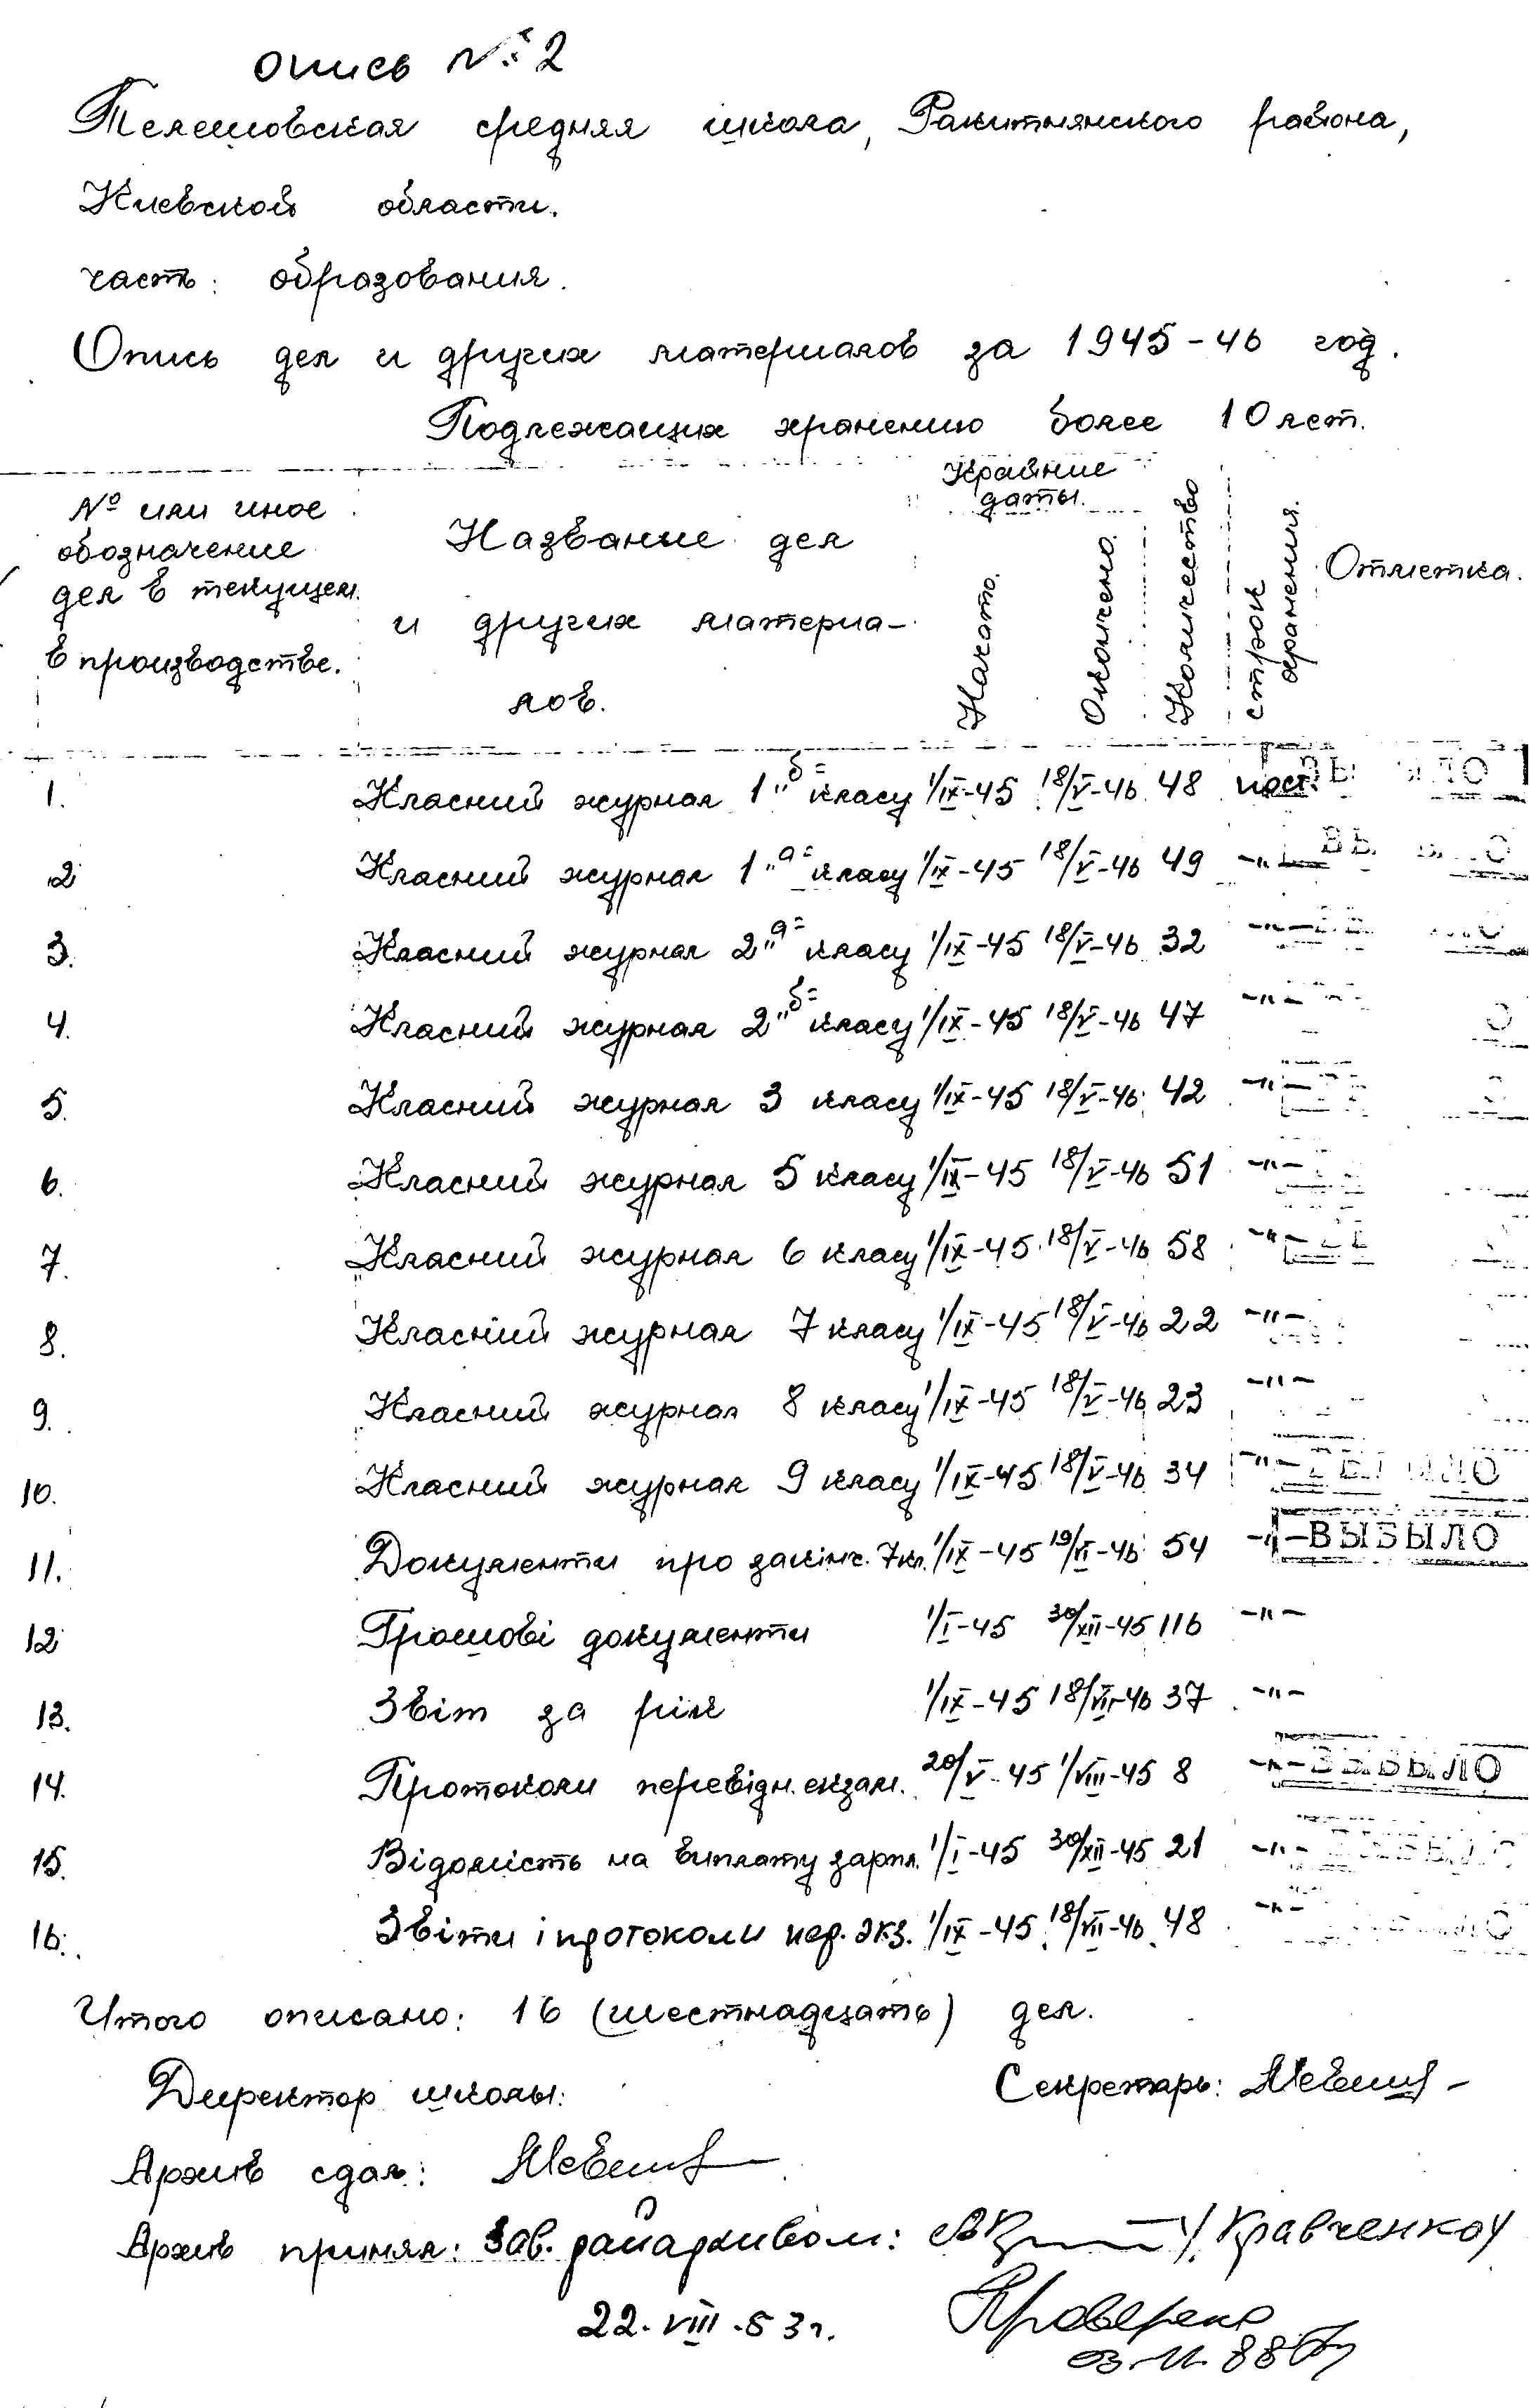 Опись № 2
Телешовская средняя школа, Ракитнянского района,
Киевской области.
часть: образования.
Опись дел и других материалов за 1945-46 год.
Подлежащих хранению более 10 лет.
№ или иное обозначение дел в текущем в производстве.
Название дел и других материа-
лов.
Крайние даты.
Начато.
Окончено.
Количество
строк хранения.
Отметка.
1. Класний журнал 1 "б" класу 1/IX-45 18/V-46 48 пост. ВЫБЫЛО
2 Класний журнал 1 "а" класу 1/IX-45 18/V-46 49 -"- ВЫБЫЛО
3. Класний журнал 2 "а" класу 1/IX-45 18/V-46 32 -"-
4. Класний журнал 2 "б" класу 1/IX-45 18/V-46 47 -"-
5. Класний журнал 3 класу 1/IX-45 18/V-46 42 -"-
6. Класний журнал 5 класу 1/IX-45 18/V-46 51 -"-
7. Класний журнал 6 класу 1/IX-45 18/V-46 58 -"-
8. Класній журнал 7 класу 1/IX-45 18/V-46 22 -"-
9. Класний журнал 8 класу 1/IX-45 18/V-46 23 -"-
10. Класний журнал 9 класу 1/IX-45 18/V-46 34 -"- ВЫБЫЛО
11. Документи про закінч. 7кл. 1/IX-45 19/VI-46 54 -"- ВЫБЫЛО
12 Грошові документи 1/I-45 30/XII-45 116 -"-
13. Звіт за рік 1/IX-45 18/VII-46 37 -"-
14. Протоколи перевідн. екзам. 20/V-45 1/VIII-45 8 -"- ВЫБЫЛО
15. Відомість на виплату зарпл. 1/I-45 30/XII-45 21 -"- ВЫБЫЛО
16. Звіти і протоколи пер. экз. 1/IX-45 18/VIII-46 48 -"- ВЫБЫЛО
Итого описано: 16 (шестнадцать) дел.
Директор школы: Секретарь:
Архив сдал:
Архив принял: Зав. райархивом: /Кравченко/
22.VIII.53г.
Проверено
03.11.88